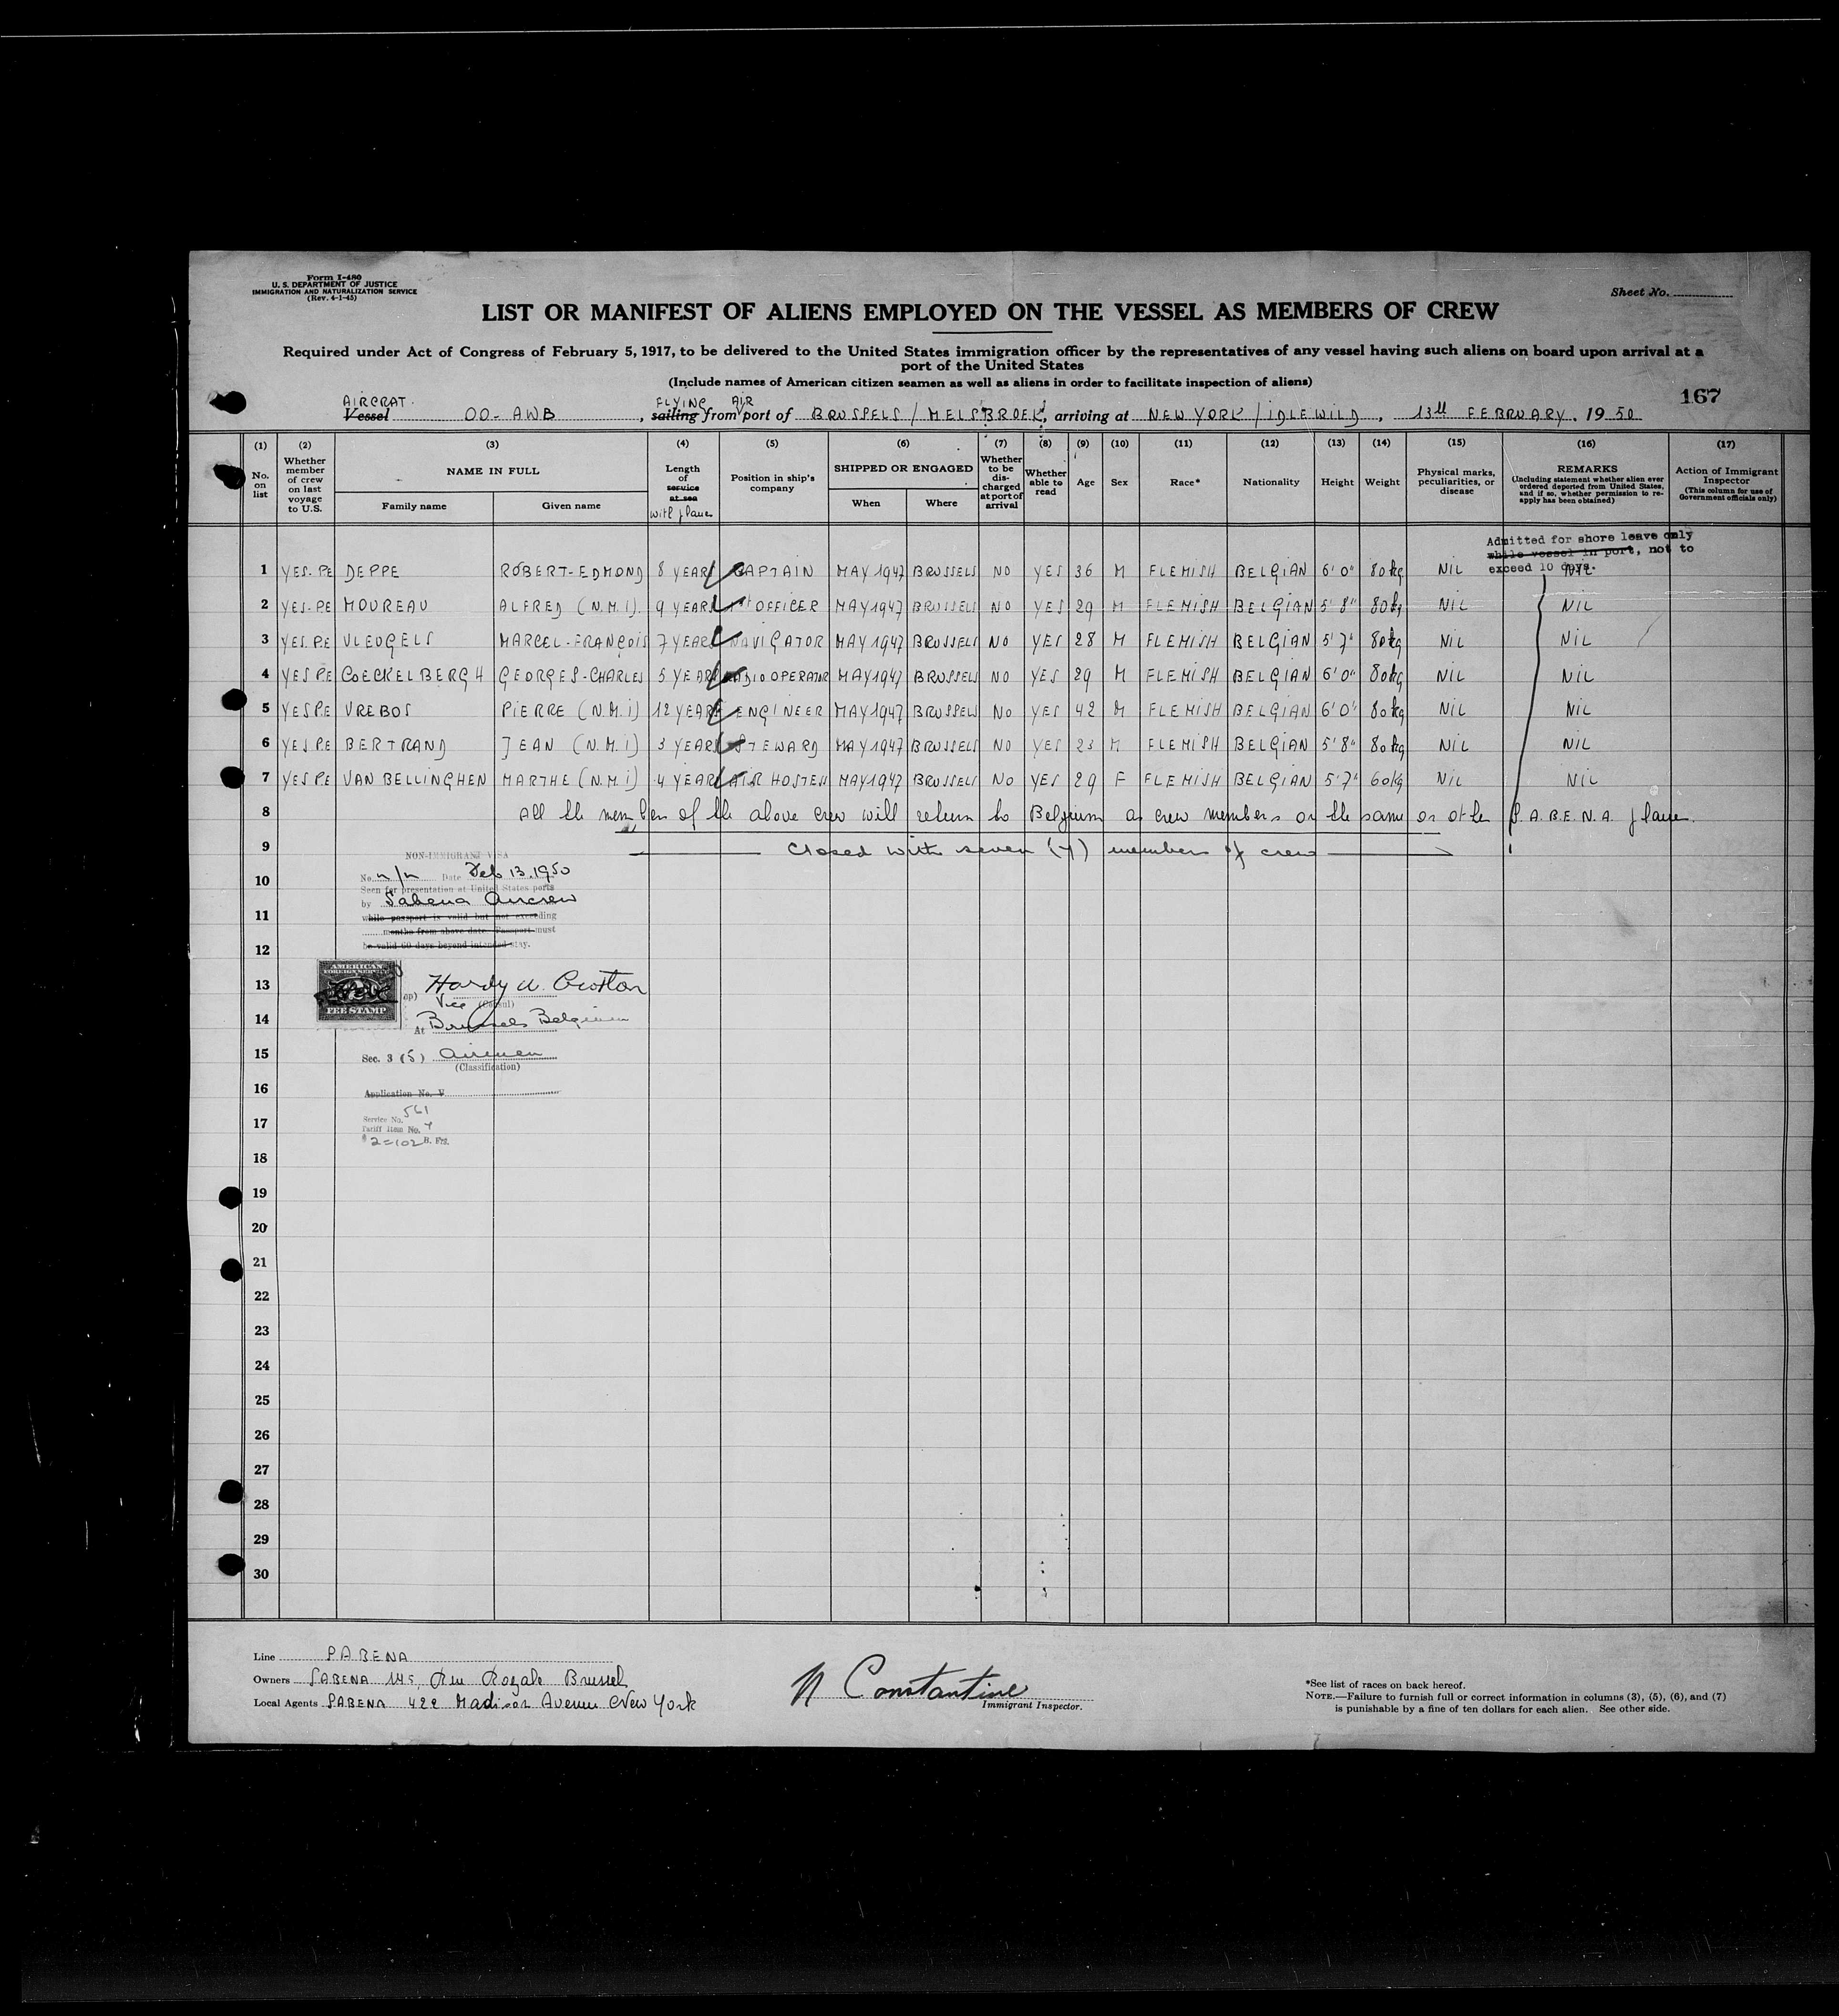 Form I-480
U. S. DEPARTMENT OF JUSTICE
IMMIGRATION AND NATURALIZATION SERVICE
(Rev. 4-1-45)
Sheet No.
LIST OR MANIFEST OF ALIENS EMPLOYED ON THE VESSEL AS MEMBERS OF CREW
Required under Act of Congress of February 5, 1917, to be delivered to the United States immigration officer by the representatives of any vessel having such aliens on board upon arrival at a
port of the United States
(Include names of American citizen seamen as well as aliens in order to facilitate inspection of aliens)
167
AIRCRAT FLYING AIR
Vessel OO-AWB, sailing from port of BRUSSELS / MELSBROEK, arriving at NEW YORK / IDLEWILD, 13th FEBRUARY, 1950
(1) (2) (3) (4) (5) (6) (7) (8) (9) (10) (11) (12) (13) (14) (15) (16) (17)
No. on list
Whether member of crew on last voyage to U.S.
NAME IN FULL
Family name
Given name
Length of service at sea with plane
Position in ship's company
SHIPPED OR ENGAGED
When
Where
Whether to be discharged at port of arrival
Whether able to read
Age
Sex
Race*
Nationality
Height
Weight
Physical marks, peculiarities, or disease
REMARKS
(Including statement whether alien ever ordered deported from United States, and if so, whether permission to reapply has been obtained)
Action of Immigrant Inspector
(This column for use of Government officials only)
Admitted for shore leave only
while vessel in port, not to
exceed 10 days.
1 YES-PE DEPPE ROBERT-EDMOND 8 YEARS CAPTAIN MAY 1947 BRUSSELS NO YES 36 M FLEMISH BELGIAN 6'0" 80kg NIL NIL
2 YES-PE MOUREAU ALFRED (N.M.I). 9 YEARS 1st OFFICER MAY 1947 BRUSSELS NO YES 29 M FLEMISH BELGIAN 5'8" 80kg NIL NIL
3 YES.PE VLEUGELS MARCEL-FRANÇOIS 7 YEARS NAVIGATOR MAY 1947 BRUSSELS NO YES 28 M FLEMISH BELGIAN 5'7" 80kg NIL NIL
4 YES PE COECKELBERGH GEORGES-CHARLES 5 YEARS RADIO OPERATOR MAY 1947 BRUSSELS NO YES 29 M FLEMISH BELGIAN 6'0" 80kg NIL NIL
5 YES PE VREBOS PIERRE (N.M.I) 12 YEARS ENGINEER MAY 1947 BRUSSELS NO YES 42 M FLEMISH BELGIAN 6'0" 80kg NIL NIL
6 YES.PE BERTRAND JEAN (N.M.I) 3 YEARS STEWARD MAY 1947 BRUSSELS NO YES 23 M FLEMISH BELGIAN 5'8" 80kg NIL NIL
7 YES PE VAN BELLINGHEN MARTHE (N.M.I) 4 YEARS AIR HOSTESS MAY 1947 BRUSSELS NO YES 29 F FLEMISH BELGIAN 5'7" 60kg NIL NIL
8 All the members of the above crew will return to Belgium as crew members on the same or other S.A.B.E.N.A. plane.
9 Closed with seven (7) members of crew
10
11
12
13
14
15
16
17
18
19
20
21
22
23
24
25
26
27
28
29
30
NON-IMMIGRANT VISA
No. n/n Date Feb 13, 1950
Seen for presentation at United States ports
by Sabena Aircrew
while passport is valid but not exceeding
months from above date. Passport must
be valid 60 days beyond intended stay.
AMERICAN
FOREIGN SERVICE
FEE STAMP
Hardy
Vice (Consul)
At Brussels Belgium
Sec. 3 (5) Airmen
(Classification)
Application No. V
Service No. 561
Tariff Item No. 7
$2=102 B. Frs.
Line SABENA
Owners SABENA 145, Rue Royale Brussels
Local Agents SABENA 422 Madison Avenue New York
N Constantine
Immigrant Inspector.
*See list of races on back hereof.
NOTE.—Failure to furnish full or correct information in columns (3), (5), (6), and (7)
is punishable by a fine of ten dollars for each alien. See other side.